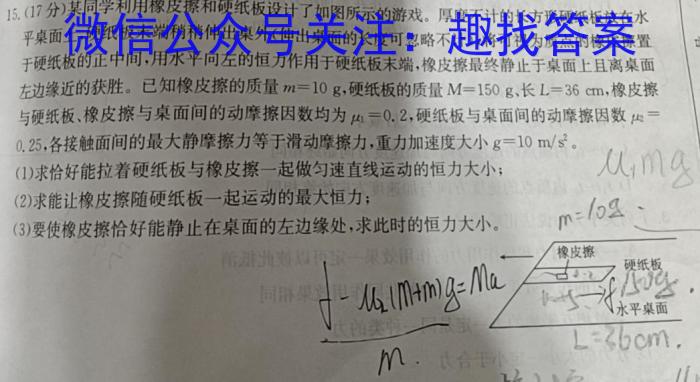 15.(17分)某同学利用橡皮擦和硬纸板设计了如图所示的游戏。厚度不计的长方形硬纸板放在水
平桌面
微信公众号关注：趣找答案
于硬纸板的正中间,用水平向左的恒力作用于硬纸板末端,橡皮擦最终静止于桌面上且离桌面
左边缘近的获胜。已知橡皮擦的质量m=10 g,硬纸板的质量M=150 g,长L=36 cm,橡皮擦
与硬纸板、橡皮擦与桌面间的动摩擦因数均为μ₁=0.2,硬纸板与桌面间的动摩擦因数μ₂=
0.25,各接触面间的最大静摩擦力等于滑动摩擦力,重力加速度大小g=10 m/s²。
(1)求恰好能拉着硬纸板与橡皮擦一起做匀速直线运动的恒力大小;
(2)求能让橡皮擦随硬纸板一起运动的最大恒力;
(3)要使橡皮擦恰好能静止在桌面的左边缘处,求此时的恒力大小。
μ₁mg
m=10g
橡皮擦
硬纸板
150g
水平桌面
L=36cm.
f-μ₂(M+m)g=Ma
m.